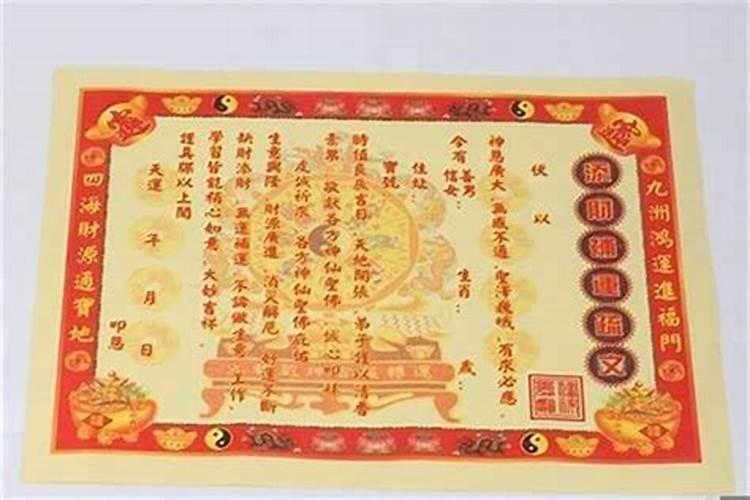 九洲鴻運進福門
添財補運疏文
伏以
神恩廣大 無感不通 聖澤巍峨 有求必應
今有 善男 信女 生肖 歲
住址
寶號
時值良辰吉日 天地開張 弟子僅以清香
素果 敬獻各方神仙聖佛 誠心叩拜
虔誠祈求 各方神仙聖佛庇佑
生意興隆 財源廣進 消災解厄 好運不斷
缺財添財 無運補運 不論做生意 工作
學習皆能稱心如意 大妙吉祥
謹具疏以上聞
天運 年 月 日
叩恩
四海財源通寶地